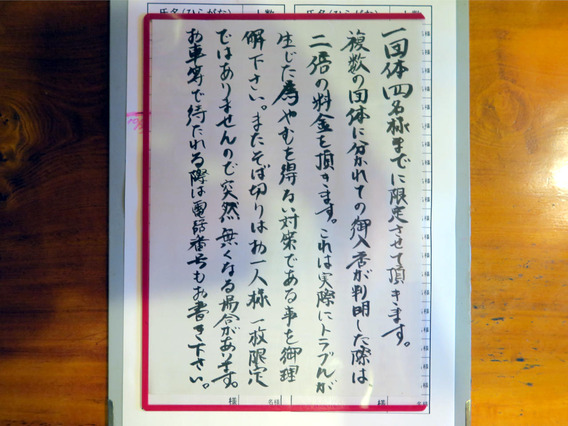 氏名(ひらがな) 人数 氏名(ひらがな) 人数
一団体四名様までに限定させて頂きます。
複数の団体に分かれての御入店が判明した際は、
二倍の料金を頂きます。これは実際にトラブルが
生じた為やむを得ない対策である事を御理
解下さい。またそば切りはお一人様一枚限定
ではありませんので突然無くなる場合があります。
お車等で待たれる際は電話番号もお書き下さい。
様 名様 様 名様